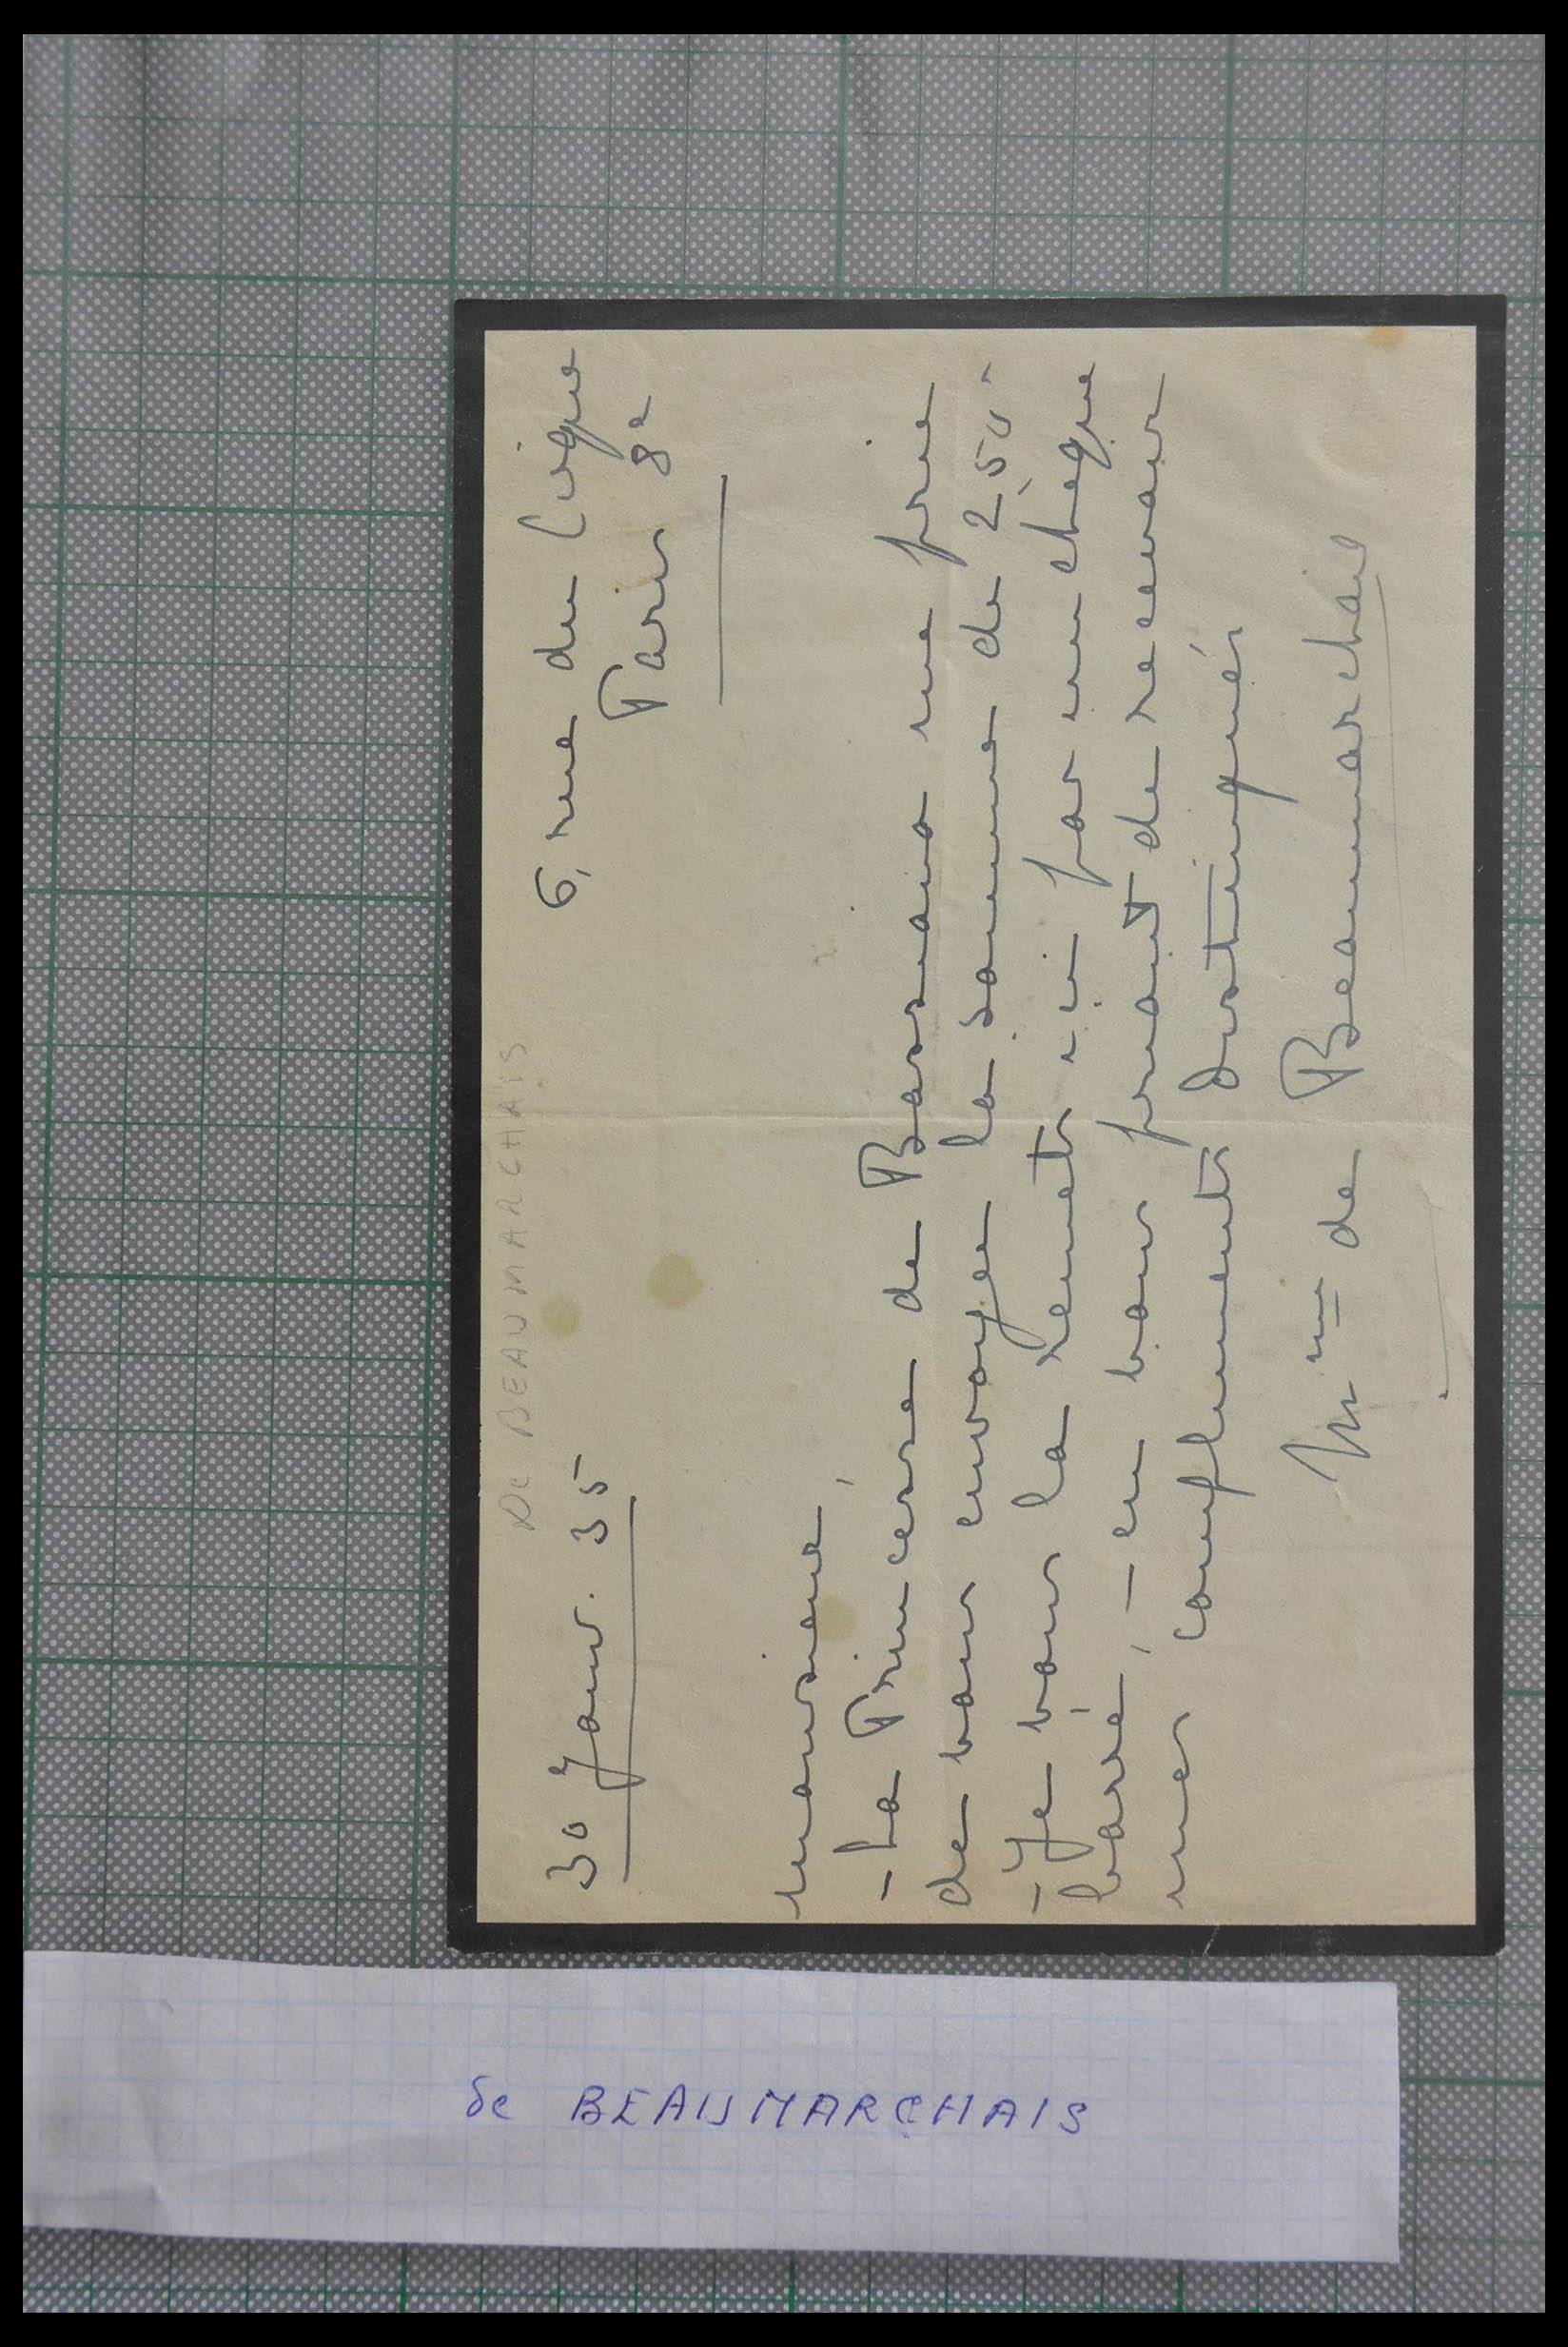 De BEAUMARCHAIS
30 Janv. 35
6, rue du Cirque
Paris 8e
Monsieur,
- La Princesse de Bassiano me prie
de vous envoyer la somme de 250.-
- Je vous la remets ici par un chèque
barré, - en vous priant de recevoir
mes compliments distingués
de Beaumarchais
de BEAUMARCHAIS